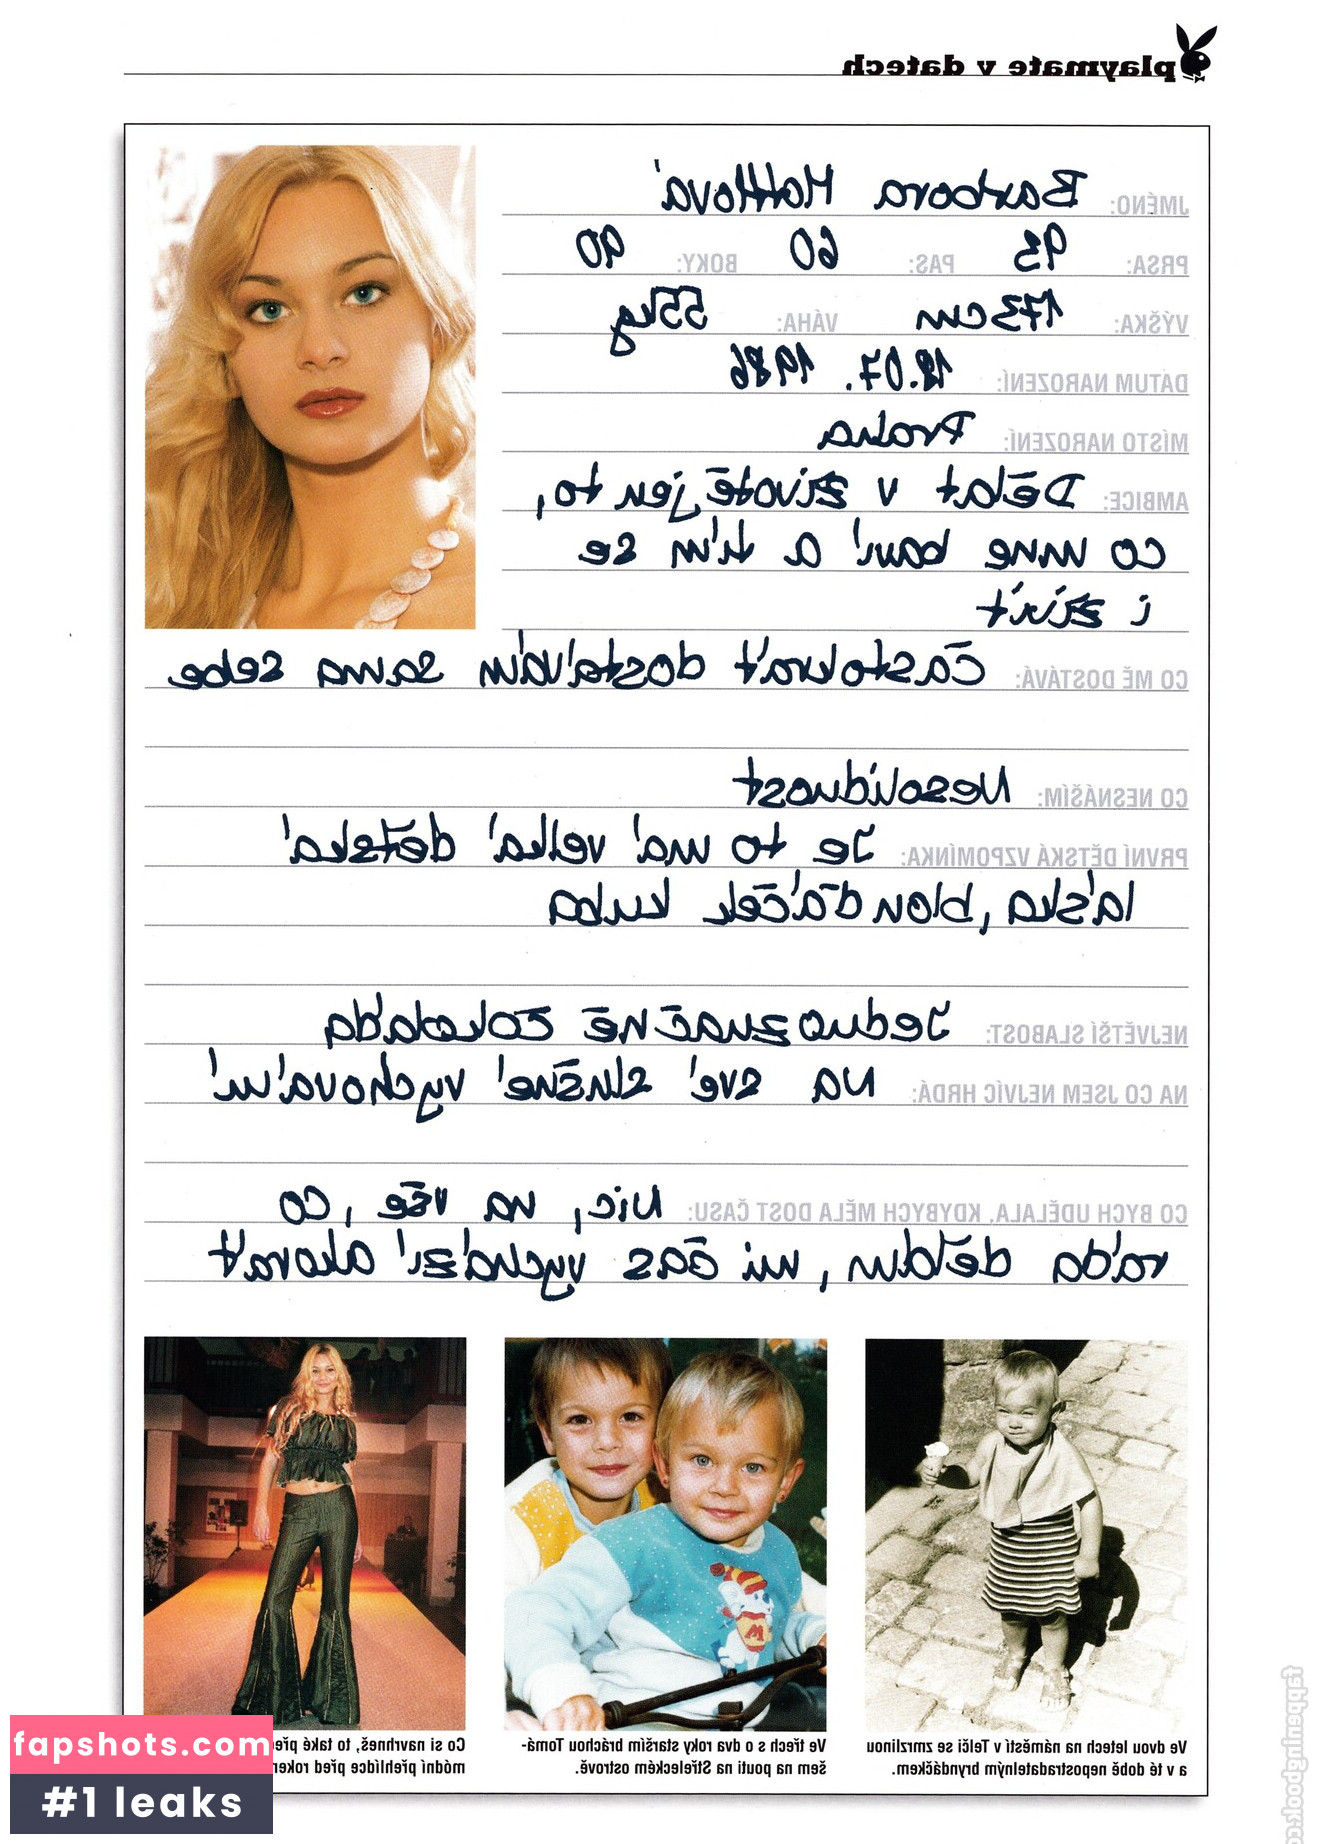 playmate v datech
JMÉNO: Barbora Mottlová
PRSA: 93 PAS: 60 BOKY: 90
VÝŠKA: 173cm VÁHA: 55kg
DATUM NAROZENÍ: 18.07. 1986
MÍSTO NAROZENÍ: Praha
AMBICE: Dělat v životě jen to,
co mne baví a tím se
i živit
CO MĚ DOSTÁVÁ: Častokrát dostávám sama sebe
CO NESNÁŠÍM: Nesolidnost
PRVNÍ DĚTSKÁ VZPOMÍNKA: Je to má velká dětská
láska, blonďáček kuba
NEJVĚTŠÍ SLABOST: Jednoznačně čokoláda
NA CO JSEM NEJVÍC HRDÁ: NA své slušné vychování
CO BYCH UDĚLALA, KDYBYCH MĚLA DOST ČASU: Nic, na vše, co
ráda dělám, mi čas vychází akorát
Ve dvou letech na náměstí v Telči se zmrzlinou
a v té době nepostradatelným bryndáčkem.
Ve třech s o dva roky starším bráchou Tomá-
šem na pouti na Střeleckém ostrově.
Co si navrhneš, to také pře
módní přehlídce před roker
fapshots.com
#1 leaks
fappeningbook.c